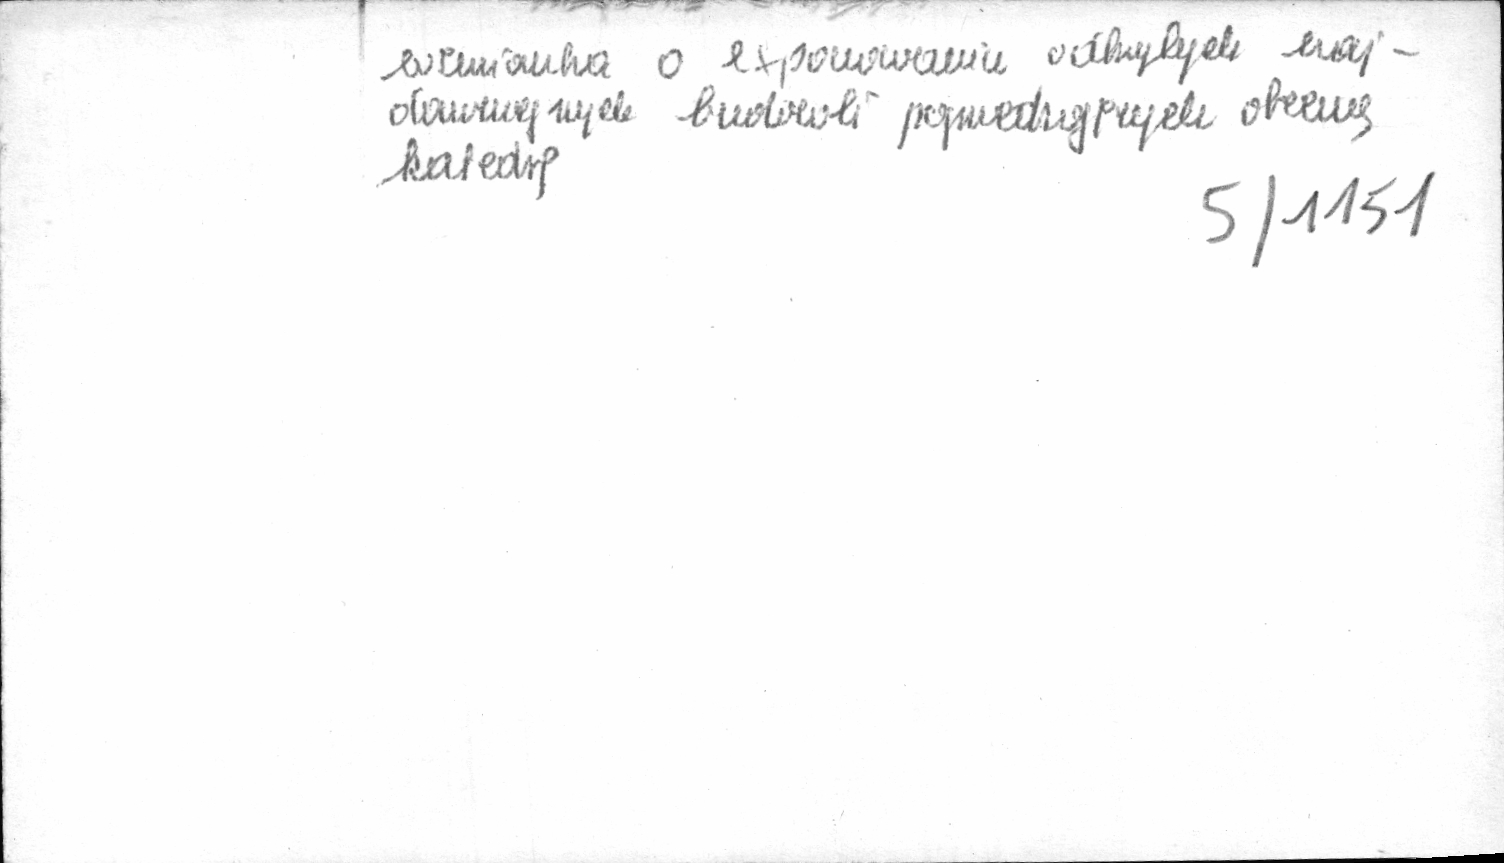 wzmianka o exponowaniu odkrytych naj-
dawniejszych budowli poprzedzających obecną
katedrę
5/1151